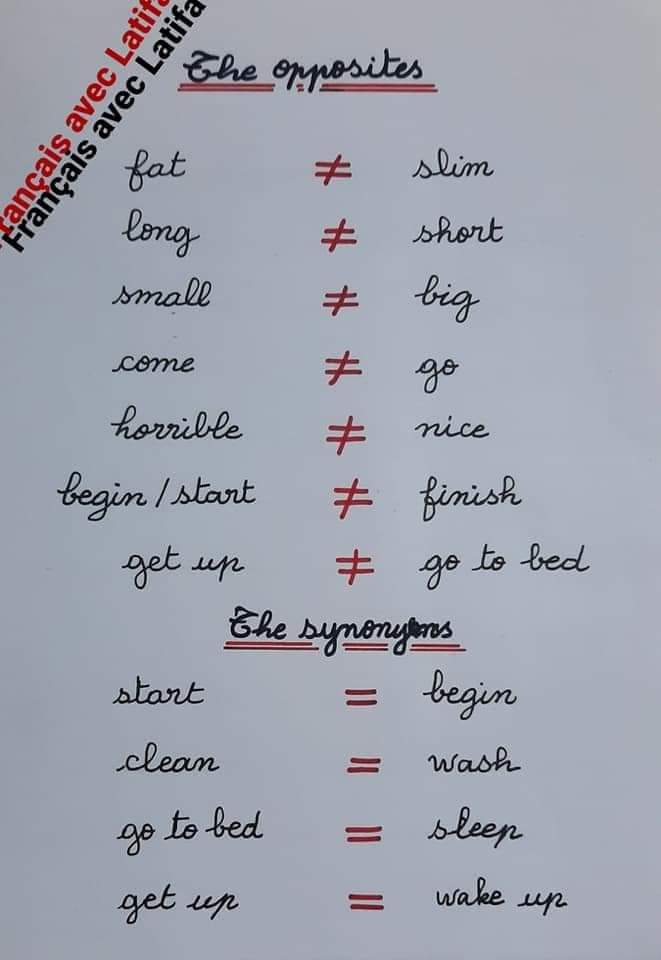 Français avec Latifa
Français avec Latifa
The opposites
fat ≠ slim
long ≠ short
small ≠ big
come ≠ go
horrible ≠ nice
begin / start ≠ finish
get up ≠ go to bed
The synonyms
start = begin
clean = wash
go to bed = sleep
get up = wake up